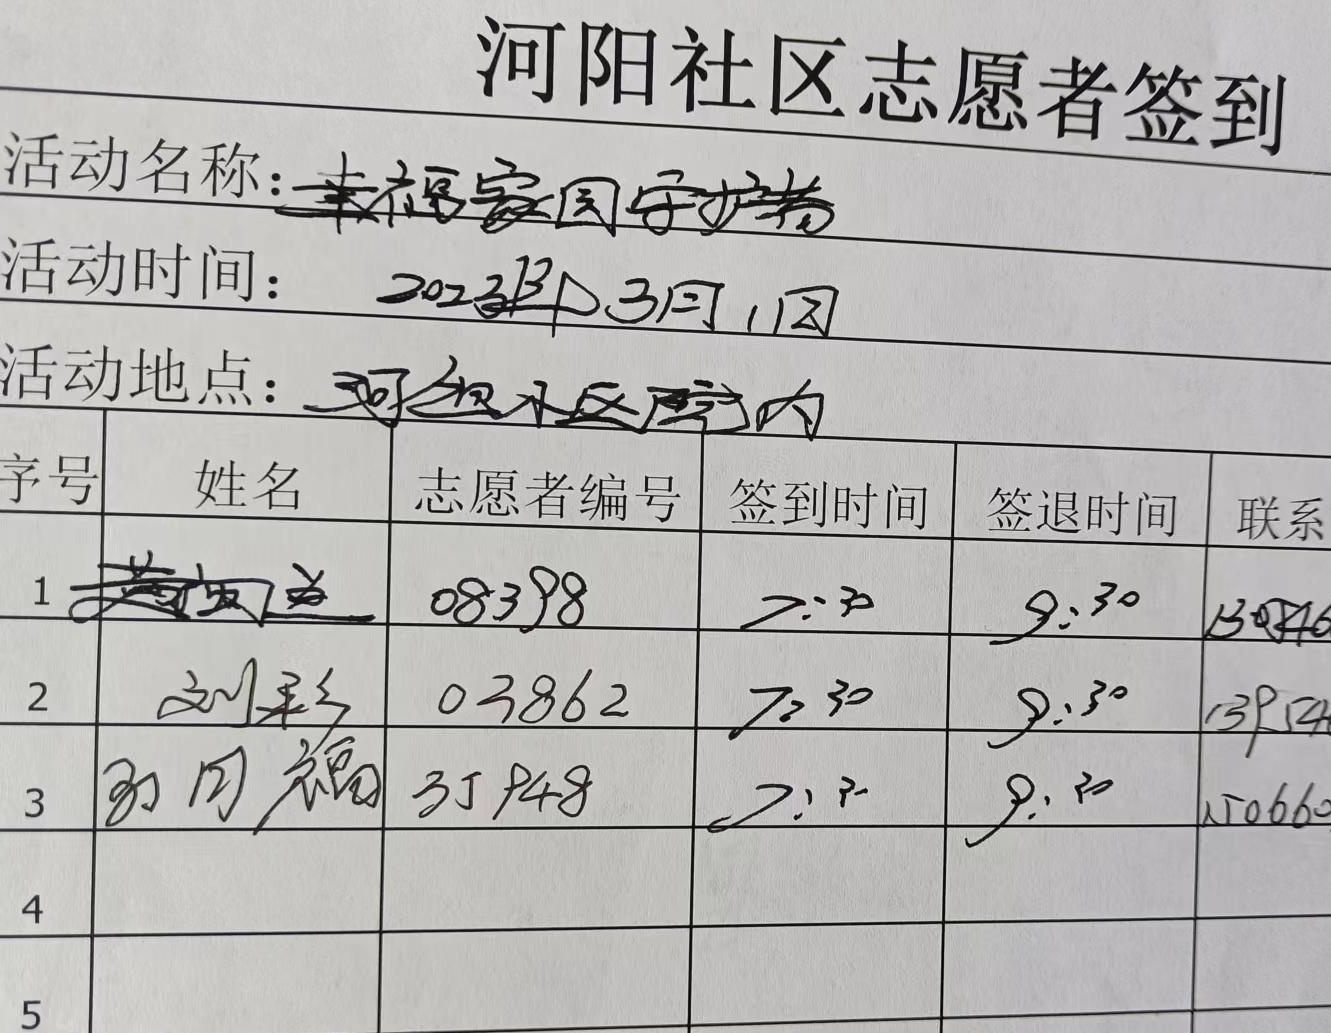 河阳社区志愿者签到
活动名称：幸福家园守护者
活动时间： 2023年3月11日
活动地点： 河阳小区院内
序号 姓名 志愿者编号 签到时间 签退时间 联系
1 08398 7:30 9:30
2 刘彩 03862 7:30 9:30 13954
3 孙同福 35948 7:30 9:30 150660
4
5